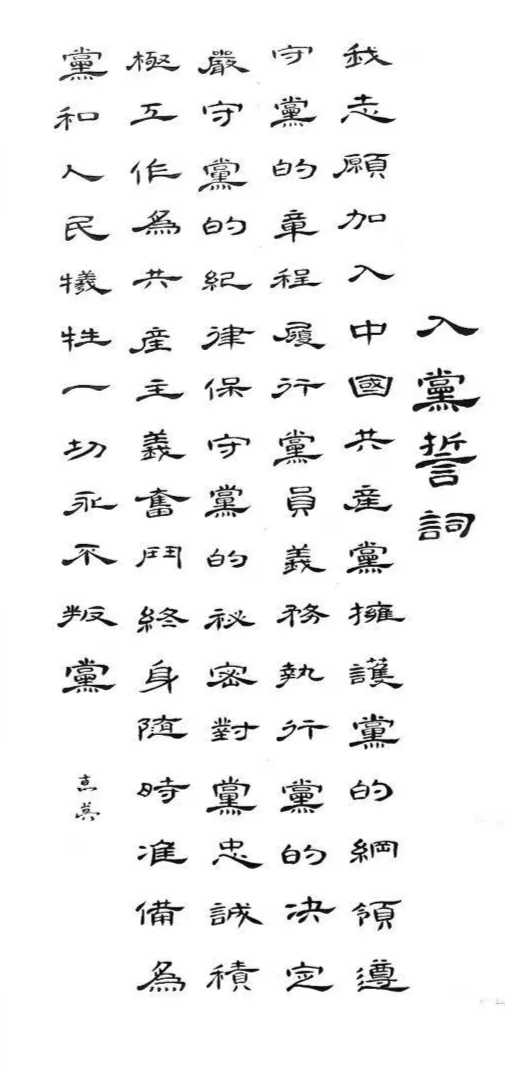 入黨誓詞
我志願加入中國共産黨擁護黨的綱領遵
守黨的章程履行黨員義務執行黨的决定
嚴守黨的紀律保守黨的祕密對黨忠誠積
極工作為共産主義奮鬥終身隨時准備為
黨和人民犧牲一切永不叛黨